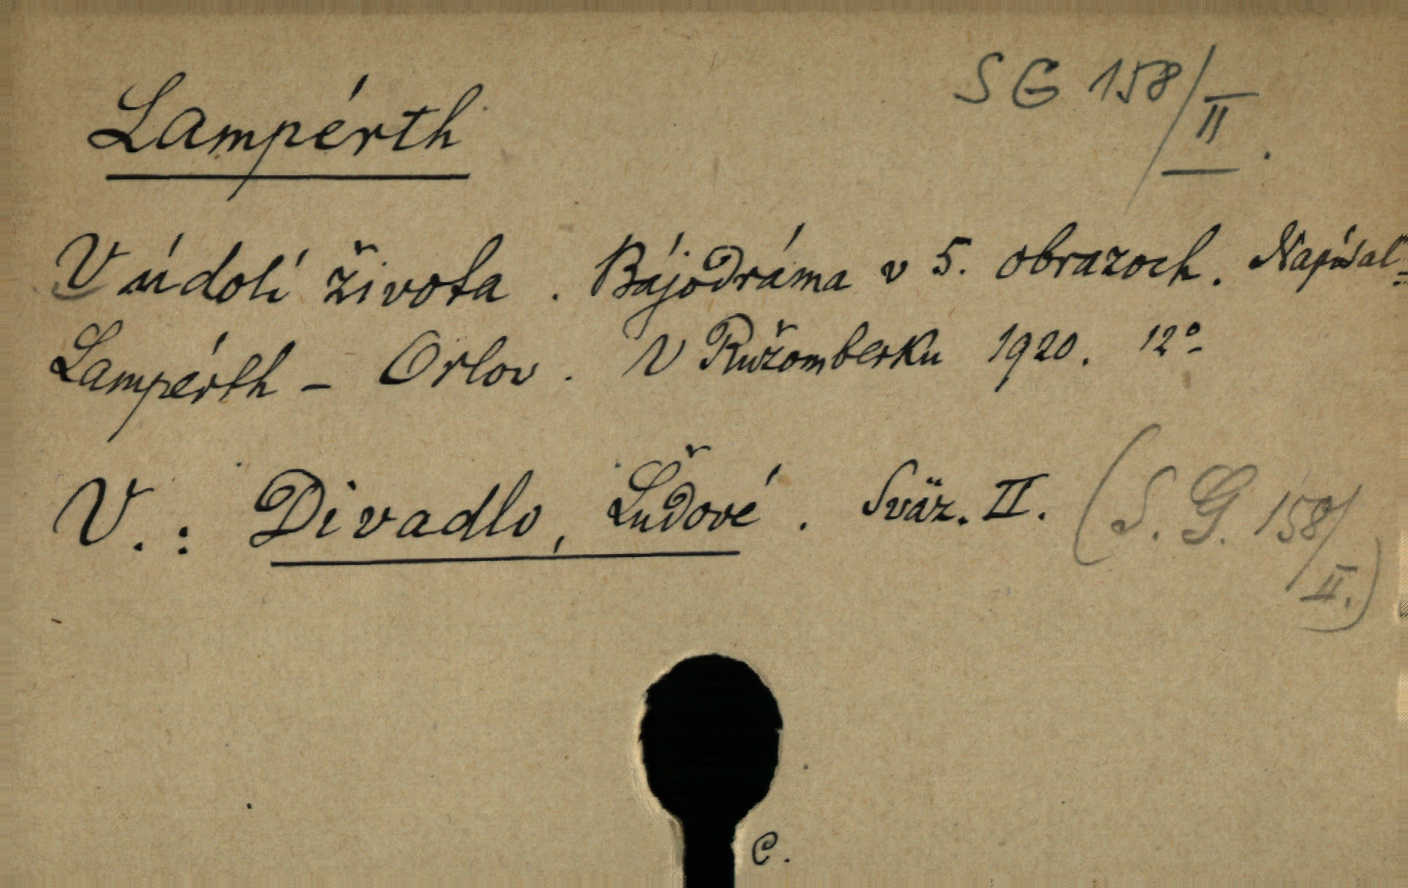 Lampérth
SG 158/II.
V údolí života. Bájodráma v 5. obrazoch. Napísal
Lampérth - Orlov. V Ružomberku 1920. 12°-
V.: Divadlo, Ľudové. Sväz. II. (S. G. 158/II.)
C.